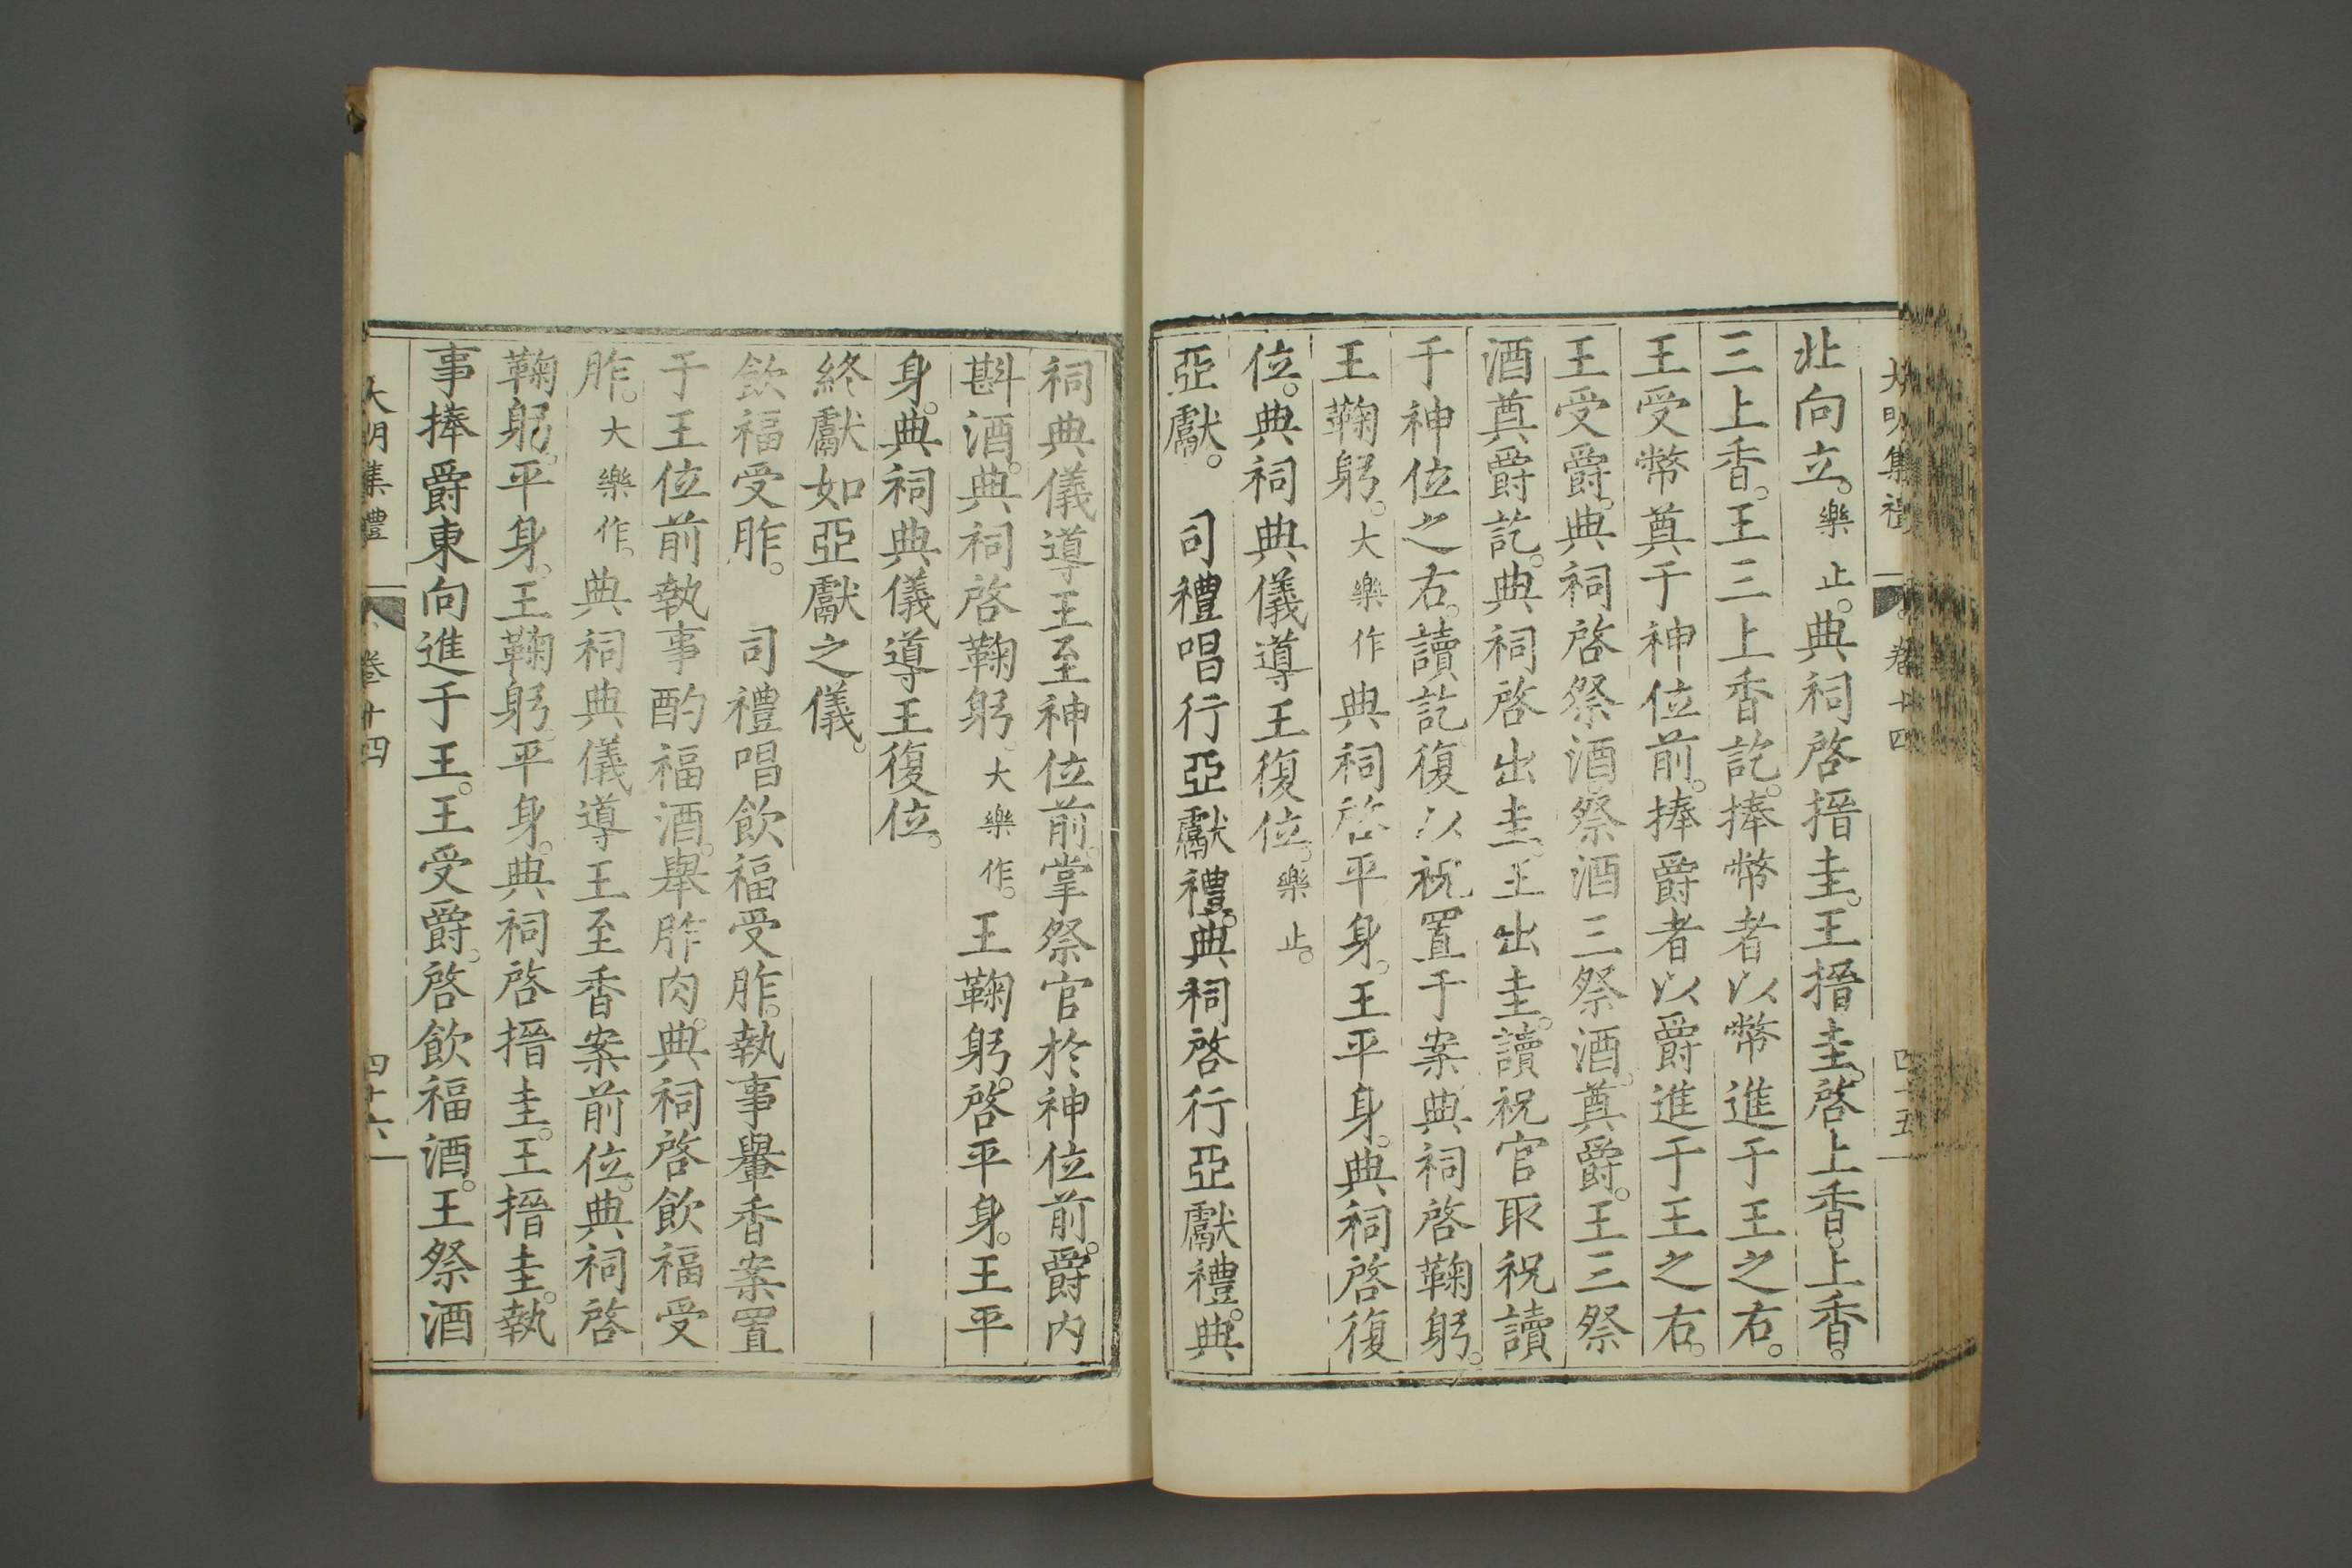 大明集禮　卷十四　四十五
北向立。樂止。典祠啓搢圭。王搢圭。啓上香。上香。
三上香。王三上香訖。捧幣者以幣進于王之右。
王受幣奠于神位前。捧爵者以爵進于王之右。
王受爵。典祠啓祭酒。祭酒三祭酒。奠爵。王三祭
酒奠爵訖。典祠啓出圭。王出圭。讀祝官取祝讀
于神位之右。讀訖復以祝置于案典祠啓鞠躬。
王鞠躬。大樂作典祠啓平身。王平身。典祠啓復
位。典祠典儀導王復位。樂止。
亞獻。　司禮唱行亞獻禮。典祠啓行亞獻禮。典
祠典儀導王至神位前。掌祭官於神位前。爵内
斟酒。典祠啓鞠躬。大樂作。王鞠躬。啓平身。王平
身。典祠典儀導王復位。
終獻如亞獻之儀。
飲福受胙。　司禮唱飲福受胙。執事轝香案置
于王位前執事酌福酒。舉胙肉。典祠啓飲福受
胙。大樂作。典祠典儀導王至香案前位。典祠啓
鞠躬。平身。王鞠躬。平身。典祠啓搢圭。王搢圭。執
事捧爵東向進于王。王受爵。啓飲福酒。王祭酒
大明集禮　卷十四　四十六